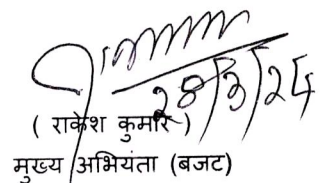 28/3/24
( राकेश कुमार )
मुख्य अभियंता (बजट)